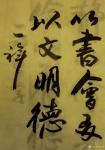 以書會友
以文明德
一禪